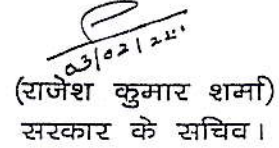 03/02/22
(राजेश कुमार शर्मा)
सरकार के सचिव।